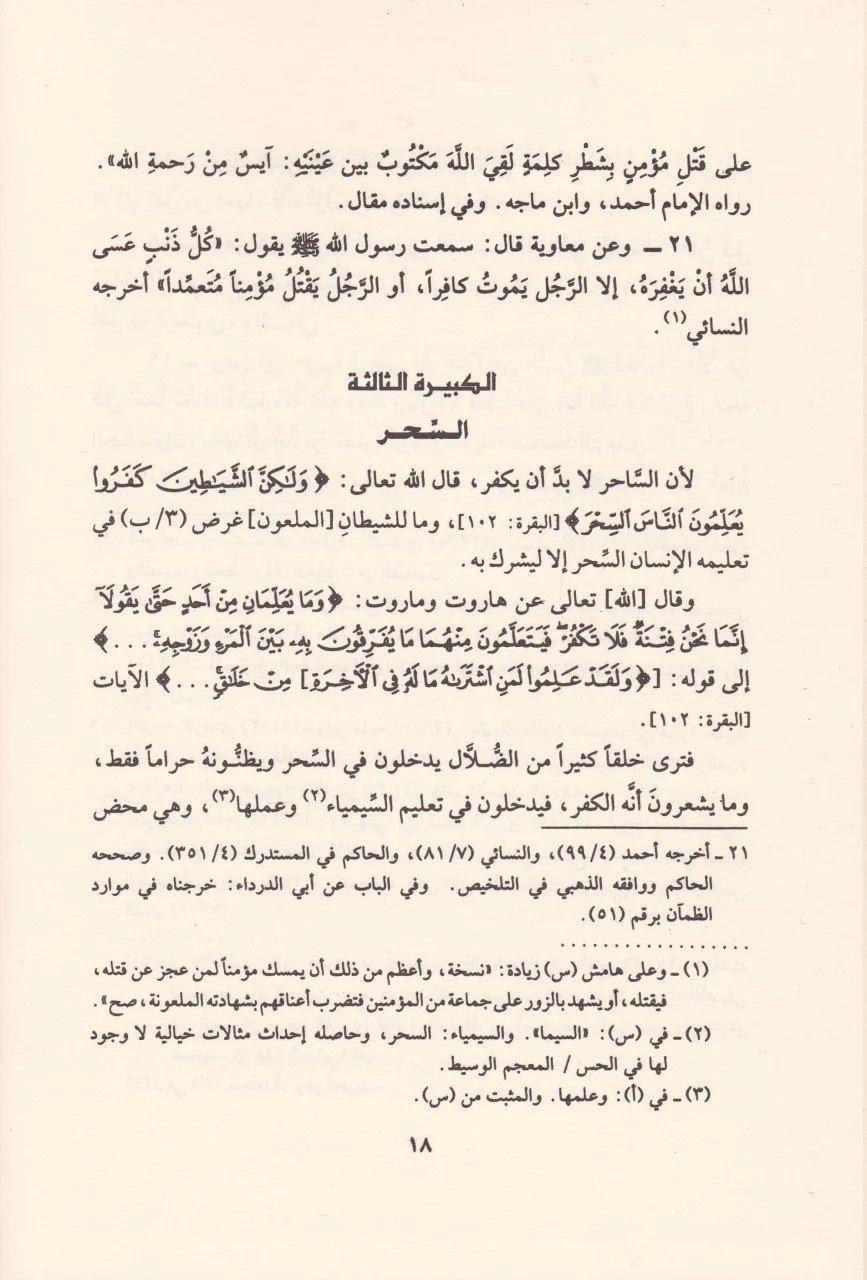 على قَتْلِ مُؤْمِنٍ بِشَطْرِ كلِمَةٍ لَقِيَ اللَّهَ مَكْتُوبٌ بين عَيْنَيْهِ: آيسٌ مِنْ رَحمةِ الله».
رواه الإمام أحمد، وابن ماجه. وفي إسناده مقال.
٢١ ـ وعن معاوية قال: سمعت رسول الله ﷺ يقول: «كُلُّ ذَنْبٍ عَسَى
اللَّهُ أنْ يَغْفِرَهُ، إلا الرَّجُل يَمُوتُ كافِراً، أو الرَّجُلُ يَقْتُلُ مُؤْمِناً مُتَعمِّداً» أخرجه
النسائي(١).
الكبيرة الثالثة
السِّحر
لأن السَّاحر لا بدَّ أن يكفر، قال الله تعالى: ﴿وَلَٰكِنَّ ٱلشَّيَٰطِينَ كَفَرُوا۟
يُعَلِّمُونَ ٱلنَّاسَ ٱلسِّحْرَ﴾ [البقرة: ١٠٢]، وما للشيطانِ [الملعون] غرض (٣/ ب) في
تعليمه الإنسان السِّحر إلا ليشرك به.
وقال [الله] تعالى عن هاروت وماروت: ﴿وَمَا يُعَلِّمَانِ مِنْ أَحَدٍ حَتَّىٰ يَقُولَآ
إِنَّمَا نَحْنُ فِتْنَةٌ فَلَا تَكْفُرْ ۖ فَيَتَعَلَّمُونَ مِنْهُمَا مَا يُفَرِّقُونَ بِهِۦ بَيْنَ ٱلْمَرْءِ وَزَوْجِهِۦ ...﴾
إلى قوله: [﴿وَلَقَدْ عَلِمُوا۟ لَمَنِ ٱشْتَرَىٰهُ مَا لَهُۥ فِى ٱلْـَٔاخِرَةِ] مِنْ خَلَٰقٍ ...﴾ الآيات
[البقرة: ١٠٢].
فترى خلقاً كثيراً من الضُّلاَّل يدخلون في السِّحر ويظنُّونهُ حراماً فقط،
وما يشعرونَ أنَّه الكفر، فيدخلون في تعليم السِّيمياء(٢) وعملها(٣)، وهي محض
٢١ ـ أخرجه أحمد (٤/ ٩٩)، والنسائي (٧/ ٨١)، والحاكم في المستدرك (٤/ ٣٥١). وصححه
الحاكم ووافقه الذهبي في التلخيص. وفي الباب عن أبي الدرداء: خرجناه في موارد
الظمآن برقم (٥١).
..................
(١) ـ وعلى هامش (س) زيادة: «نسخة، وأعظم من ذلك أن يمسك مؤمناً لمن عجز عن قتله،
فيقتله، أو يشهد بالزور على جماعة من المؤمنين فتضرب أعناقهم بشهادته الملعونة، صح».
(٢) ـ في (س): «السيما». والسيمياء: السحر، وحاصله إحداث مثالات خيالية لا وجود
لها في الحس / المعجم الوسيط.
(٣) ـ في (أ): وعلمها. والمثبت من (س).
١٨